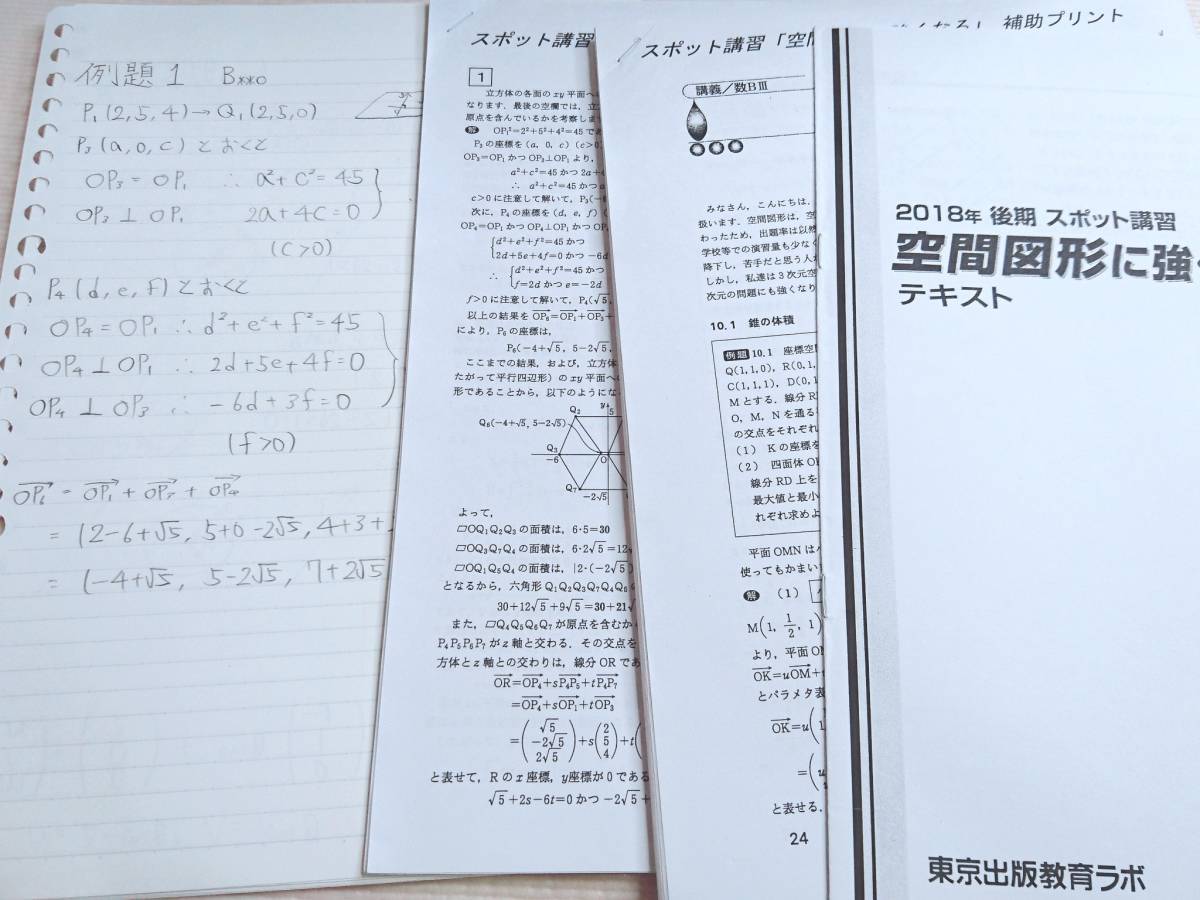 例題1 B**○
P₁(2,5,4)→Q₁(2,5,0)
P₃(a,0,c)とおくと
OP₃=OP₁ ∴a²+c²=45
OP₃⊥OP₁ 2a+4c=0
(c>0)
P₄(d,e,f)とおくと
OP₄=OP₁ ∴d²+e²+f²=45
OP₄⊥OP₁ ∴2d+5e+4f=0
OP₄⊥OP₃ ∴-6d+3f=0
(f>0)
=(2-6+√5, 5+0-2√5, 4+3+
=(-4+√5, 5-2√5, 7+2√5
スポット講習
1
立方体の各面のxy平面へ
なります.最後の空欄では,立
原点を含んでいるかを考察しま
解 OP₁²=2²+5²+4²=45であ
P₃の座標を(a, 0, c)(c>0
OP₃=OP₁かつOP₃⊥OP₁より,
a²+c²=45かつ2a+4
∴ a²+c²=45かつa
c>0に注意して解いて,P₃(-
次に,P₄の座標を(d, e, f)
OP₄=OP₁かつOP₄⊥OP₁かつOP
d²+e²+f²=45かつ
2d+5e+4f=0かつ-6d
∴ d²+e²+f²=45かつ
f=2dかつe=-2d
f>0に注意して解いて,P₄(√5,
以上の結果をOP₆=OP₁+OP₃+
により,P₆の座標は,
P₆(-4+√5, 5-2√5,
ここまでの結果,および,立方体
たがって平行四辺形)のxy平面へ
形であることから,以下のようにな
Q₂
y
5
Q₆(-4+√5, 5-2√5)
Q₃
-6
O
Q₇
-2√5
よって,
▱OQ₁Q₂Q₃の面積は,6·5=30
▱OQ₃Q₇Q₄の面積は,6·2√5=12
▱OQ₁Q₅Q₄の面積は,|2·(-2√5)
となるから,六角形Q₁Q₂Q₃Q₇Q₄Q₅
30+12√5+9√5=30+21√
また,▱Q₄Q₅Q₆Q₇が原点を含むか
P₄P₅P₆P₇がz軸と交わる.その交点を
方体とz軸との交わりは,線分ORであ
OR=OP₄+sP₄P₅+tP₄P₇
=OP₄+sOP₁+tOP₃
=(√5 -2√5 2√5)+s(2 5 4)+t(
と表せて,Rのx座標,y座標が0である
√5+2s-6t=0かつ-2√5+
スポット講習「空間
講義/数BⅢ
みなさん,こんにちは.
扱います.空間図形は,空
わったため,出題率は以然
学校等での演習量も少なく
降下し,苦手だと思う人
しかし,私達は3次元空
次元の問題にも強くなり
10.1 錐の体積
例題 10.1 座標空間
Q(1,1,0),R(0,1,
C(1,1,1),D(0,1
Mとする.線分R
O,M,Nを通る
の交点をそれぞれ
(1) Kの座標を
(2) 四面体O
線分RD上を
最大値と最小
れぞれ求めよ
平面OMNは
使ってもかまい
解 (1)
M(1, 1/2, 1)
より,平面O
OK=uOM+
とパラメタ表
OK=u(1
=(u
と表せる.
24
補助プリント
2018年 後期 スポット講習
空間図形に強
テキスト
東京出版教育ラボ